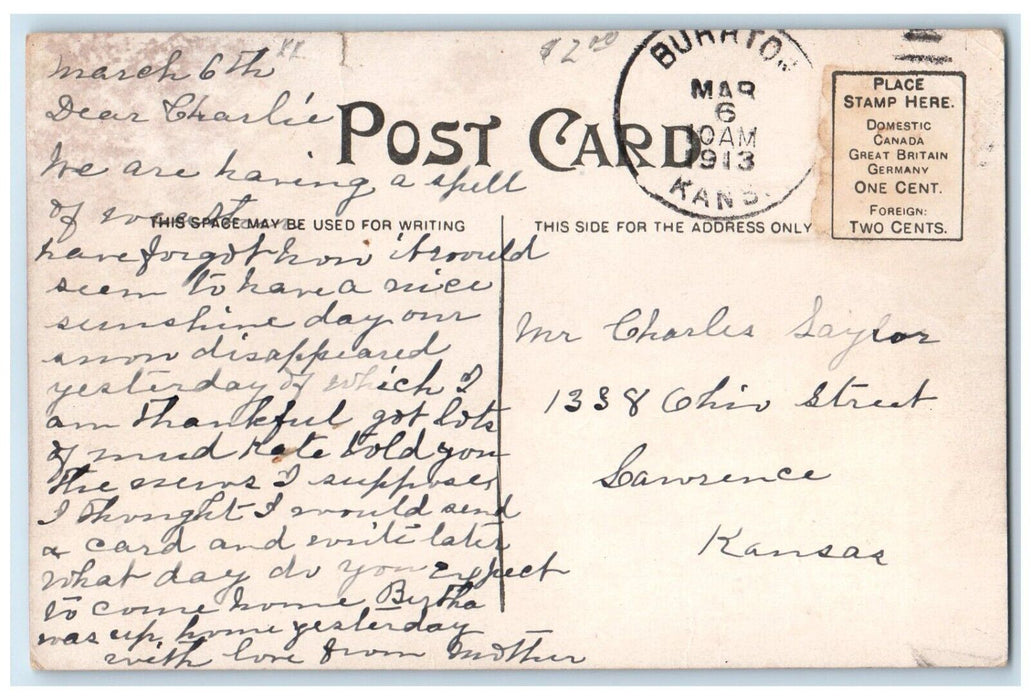 March 6th
$2.00
Dear Charlie
POST CARD
We are having a spell
of
THIS SPACE MAY BE USED FOR WRITING
have forgot how it would
seem to have a nice
sunshine day our
snow disappeared
yesterday of which I
am thankful got lots
of mud Kate told you
the news I suppose,
I thought I would send
a card and write later
what day do you expect
to come home Bertha
was up home yesterday
with love from Mother
BURRTON
MAR
6
10AM
1913
KANS.
PLACE
STAMP HERE.
DOMESTIC
CANADA
GREAT BRITAIN
GERMANY
ONE CENT.
FOREIGN:
TWO CENTS.
THIS SIDE FOR THE ADDRESS ONLY
Mr Charles Saylor
1338 Ohio Street
Lawrence
Kansas